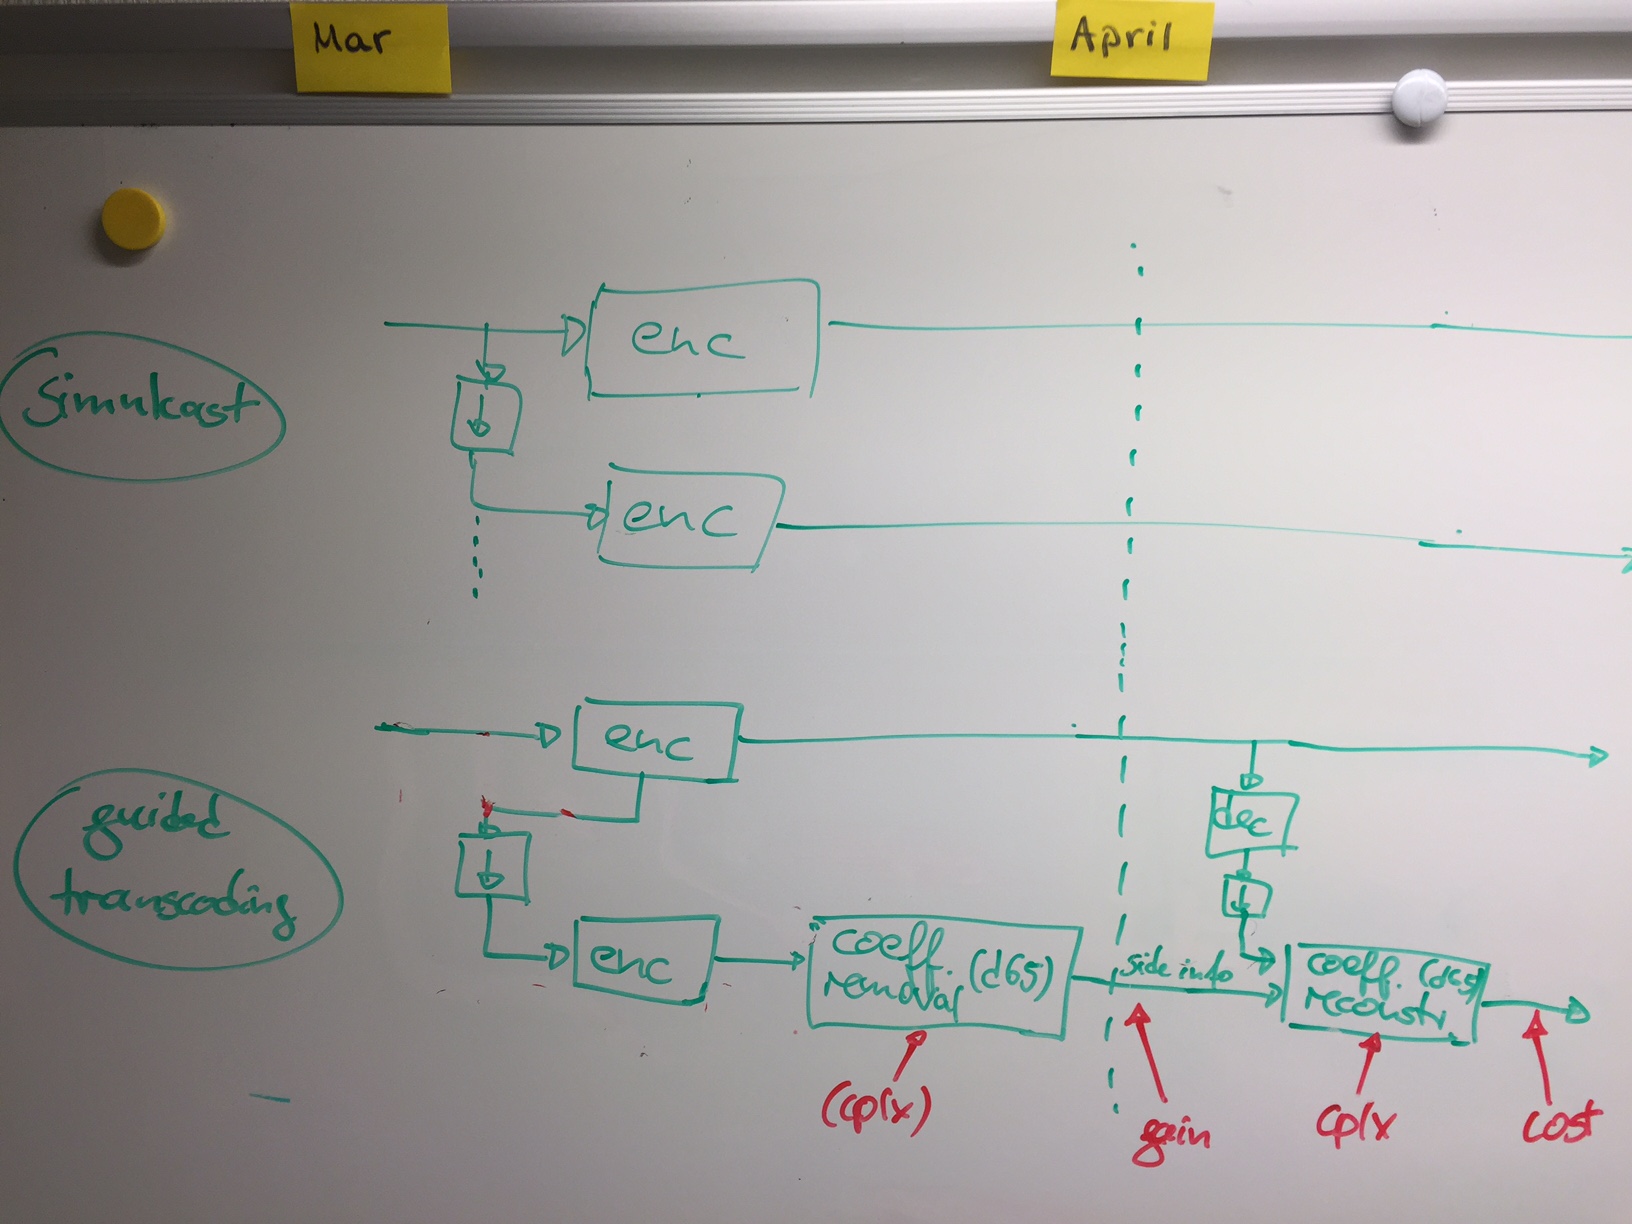 Mar
April
Simulcast
enc
enc
guided
transcoding
enc
dec
enc
coeff.
removal
(d65)
side info
coeff. (d65)
reconstr.
(cplx)
gain
cplx
cost